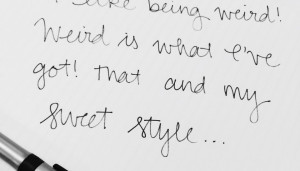 I like being weird!
Weird is what I've
got! That and my
sweet style...